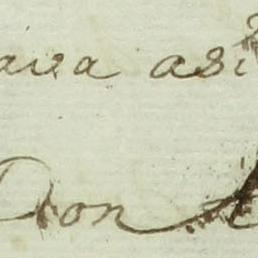 ava asi
Don